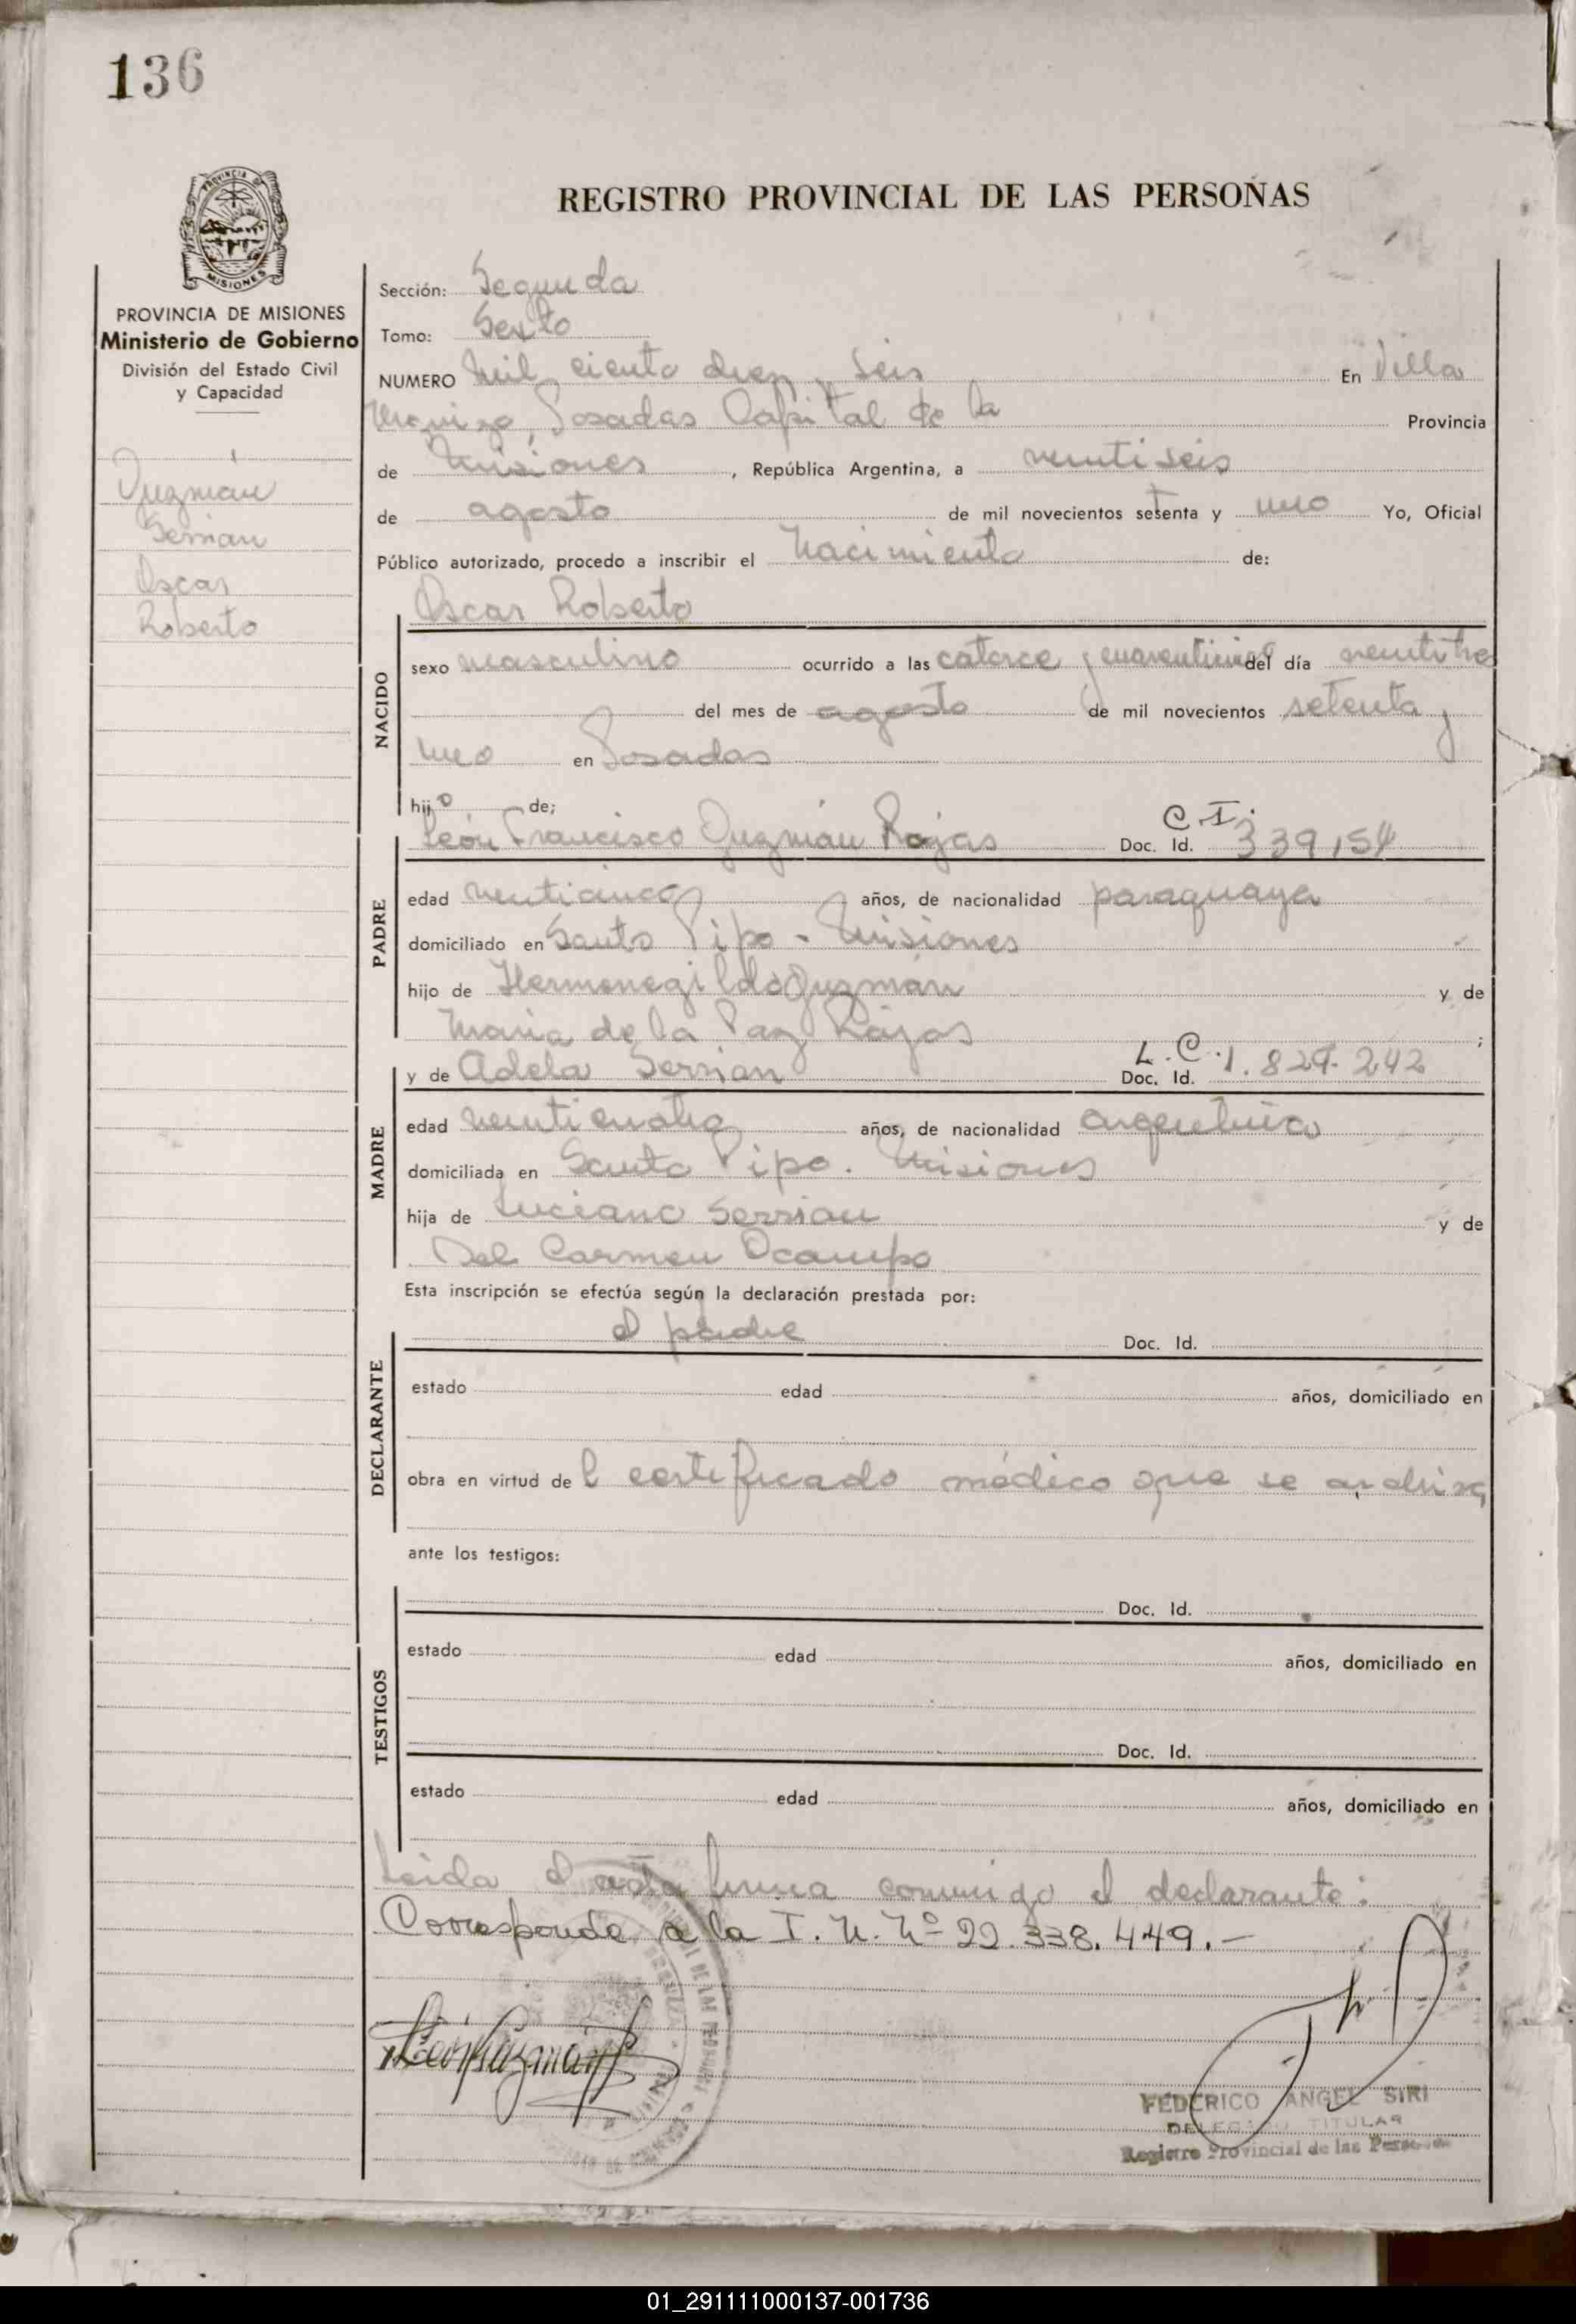 136
PROVINCIA DE MISIONES
REGISTRO PROVINCIAL DE LAS PERSONAS
PROVINCIA DE MISIONES
Ministerio de Gobierno
División del Estado Civil
y Capacidad
Guzmán
Serrian
Oscar
Roberto
Sección: Segunda
Tomo: Sexto
NUMERO Mil ciento diez y seis En Villa
Urquiza, Posadas Capital de la Provincia
de Misiones, República Argentina, a veintiseis
de agosto de mil novecientos setenta y uno Yo, Oficial
Público autorizado, procedo a inscribir el Nacimiento de:
Oscar Roberto
NACIDO
sexo masculino ocurrido a las catorce y cuarenticinco del día veintitres
del mes de agosto de mil novecientos setenta y
uno en Posadas
hijo de;
León Francisco Guzmán Rojas Doc. Id. C.I. 339,154
PADRE
edad veinticinco años, de nacionalidad paraguaya
domiciliado en Santo Pipo - Misiones
hijo de Hermenegildo Guzmán y de
Maria de la Paz Rojas ;
y de Adela Serrian Doc. Id. L.C. 1.829.242
MADRE
edad veinticuatro años, de nacionalidad argentina
domiciliada en Santo Pipo. Misiones
hija de Luciano Serrian y de
Del Carmen Ocampo
Esta inscripción se efectúa según la declaración prestada por:
el padre Doc. Id.
DECLARANTE
estado edad años, domiciliado en
obra en virtud del certificado médico que se archiva
ante los testigos:
Doc. Id.
TESTIGOS
estado edad años, domiciliado en
Doc. Id.
estado edad años, domiciliado en
Leida el acta firma conmigo el declarante:
Corresponde a la I. N. Nº 22.338.449.-
León Guzmán
FEDERICO ANGEL SIRI
DELEGADO TITULAR
Registro Provincial de las Personas
01_291111000137-001736